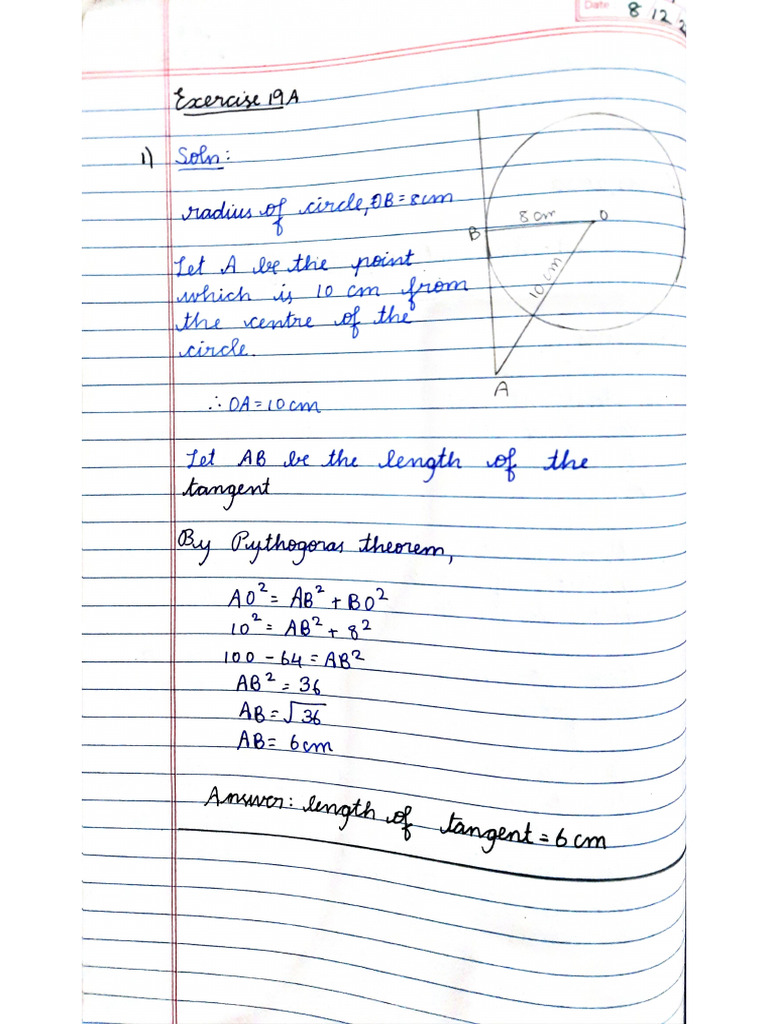 Date 8/12/2
Exercise 19A
1) Soln:
radius of circle, OB = 8cm
Let A be the point
which is 10 cm from
the centre of the
circle.
∴ OA = 10 cm
Let AB be the length of the
tangent
By Pythogoras theorem,
AO² = AB² + BO²
10² = AB² + 8²
100 - 64 = AB²
AB² = 36
AB = √36
AB = 6cm
Answer: length of tangent = 6 cm
B
8 cm
O
10 cm
A